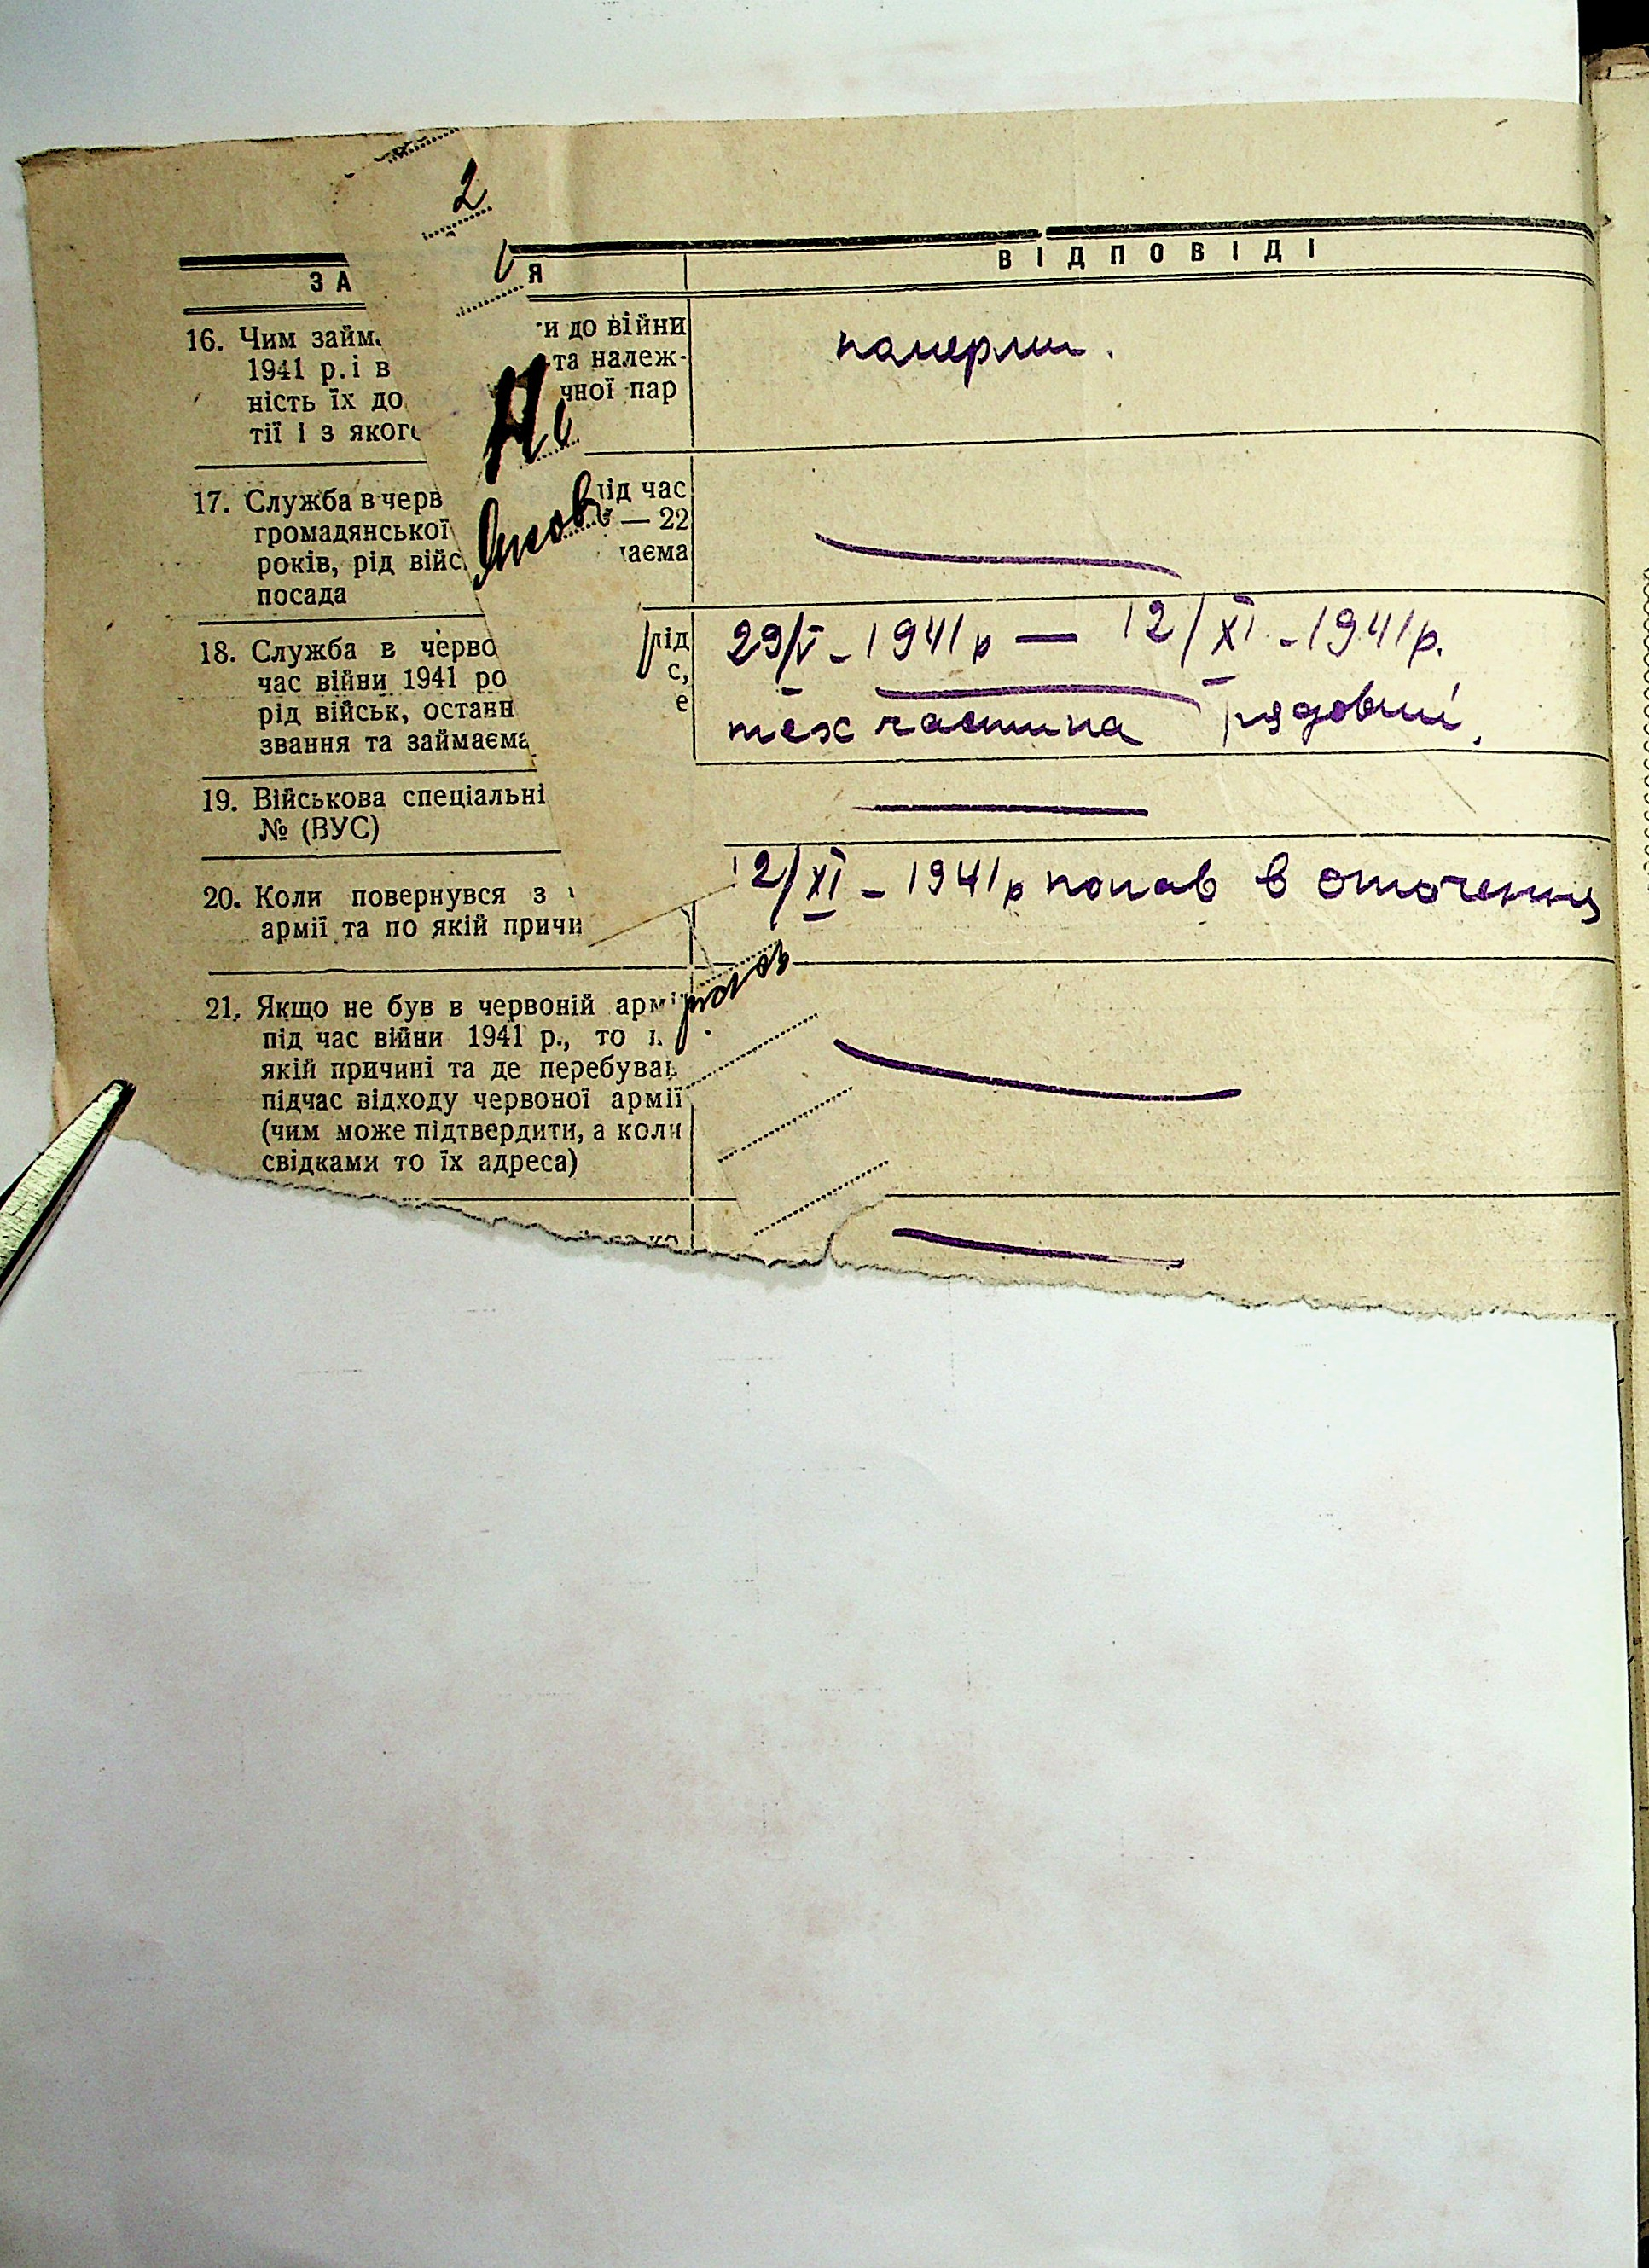 2
ЗА Я ВІДПОВІДІ
16. Чим займ и до війни
1941 р. і в та належ-
ність їх до чної пар
тії і з яког
померли.
17. Служба в черв під час
громадянської — 22
років, рід війс
посада
18. Служба в черво рід
час війни 1941 ро с,
рід військ, останн е
звання та займаєма
29/V - 1941 р — 12/XI - 1941 р.
тех частина рядовий.
19. Військова спеціальні
№ (ВУС)
20. Коли повернувся з
армії та по якій причи
12/XI - 1941 р попав в оточення
21. Якщо не був в червоній армі
під час війни 1941 р., то
якій причині та де перебував
підчас відходу червоної армії
(чим може підтвердити, а коли
свідками то їх адреса)